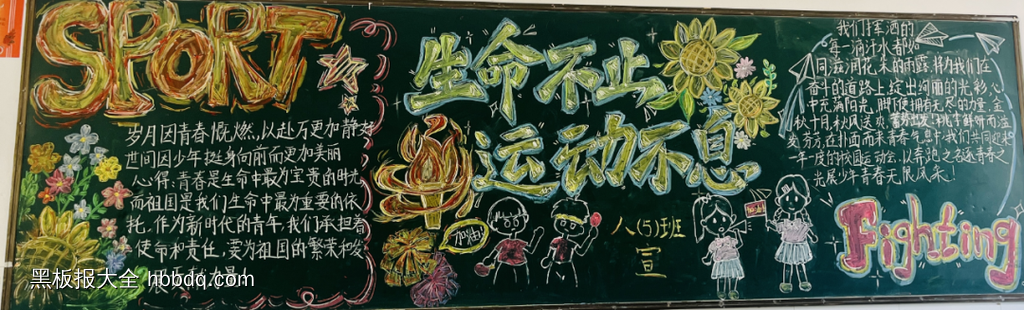 SPORT
岁月因青春慨然,以赴万更加静好
世间因少年挺身向前而更加美丽
心得:青春是生命中最为宝贵的时光
而祖国是我们生命中最力重要的依
托,作为新时代的青年,我们承担着
使命和责任,要为祖国的繁荣和发
黑板报大全 hbbdq.com
生命不止
运动不息
加油!
八(5)班
宣
我们挥洒的
每一滴汗水都如
同滋润花朵的雨露,将为我们在
奋斗的道路上绽出绚丽的光彩,心
中充满阳光,脚下便拥有无尽的力量,金
秋十月秋风送爽
芬芳,在扑面而来青春气息中,我们共同迎来
一年一度的校园运动会,以奔跑之名逐青春之
光展少年青春无限风采!
Fighting